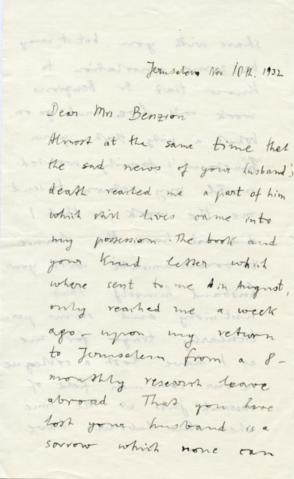 Jerusalem Nov 10th. 1932
Dear Mrs Benzion
Almost at the same time that
the sad news of your husband's
death reached me a part of him
which still lives came into
my possession. The book and
your kind letter which
where sent to me in August,
only reached me a week
ago - upon my return
to Jerusalem from a 8-
monthly research leave
abroad. That you have
lost your husband is a
sorrow which none can